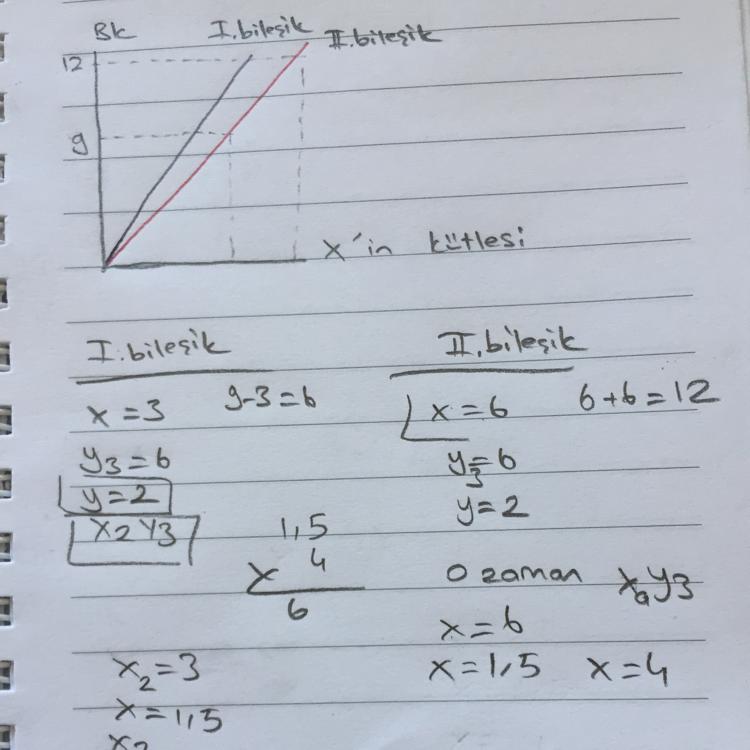 Bk I.bileşik II.bileşik
12
9
X'in kütlesi
I.bileşik II.bileşik
x=3 9-3=6 x=6 6+6=12
y3=6 y3=6
y=2 y=2
X2Y3 1,5
x 4 O zaman XaY3
6 x=6
x2=3 x=1,5 x=4
x=1,5
x2